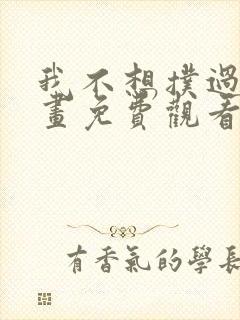 我不想撲過
畫免費觀看
有香氣的學長